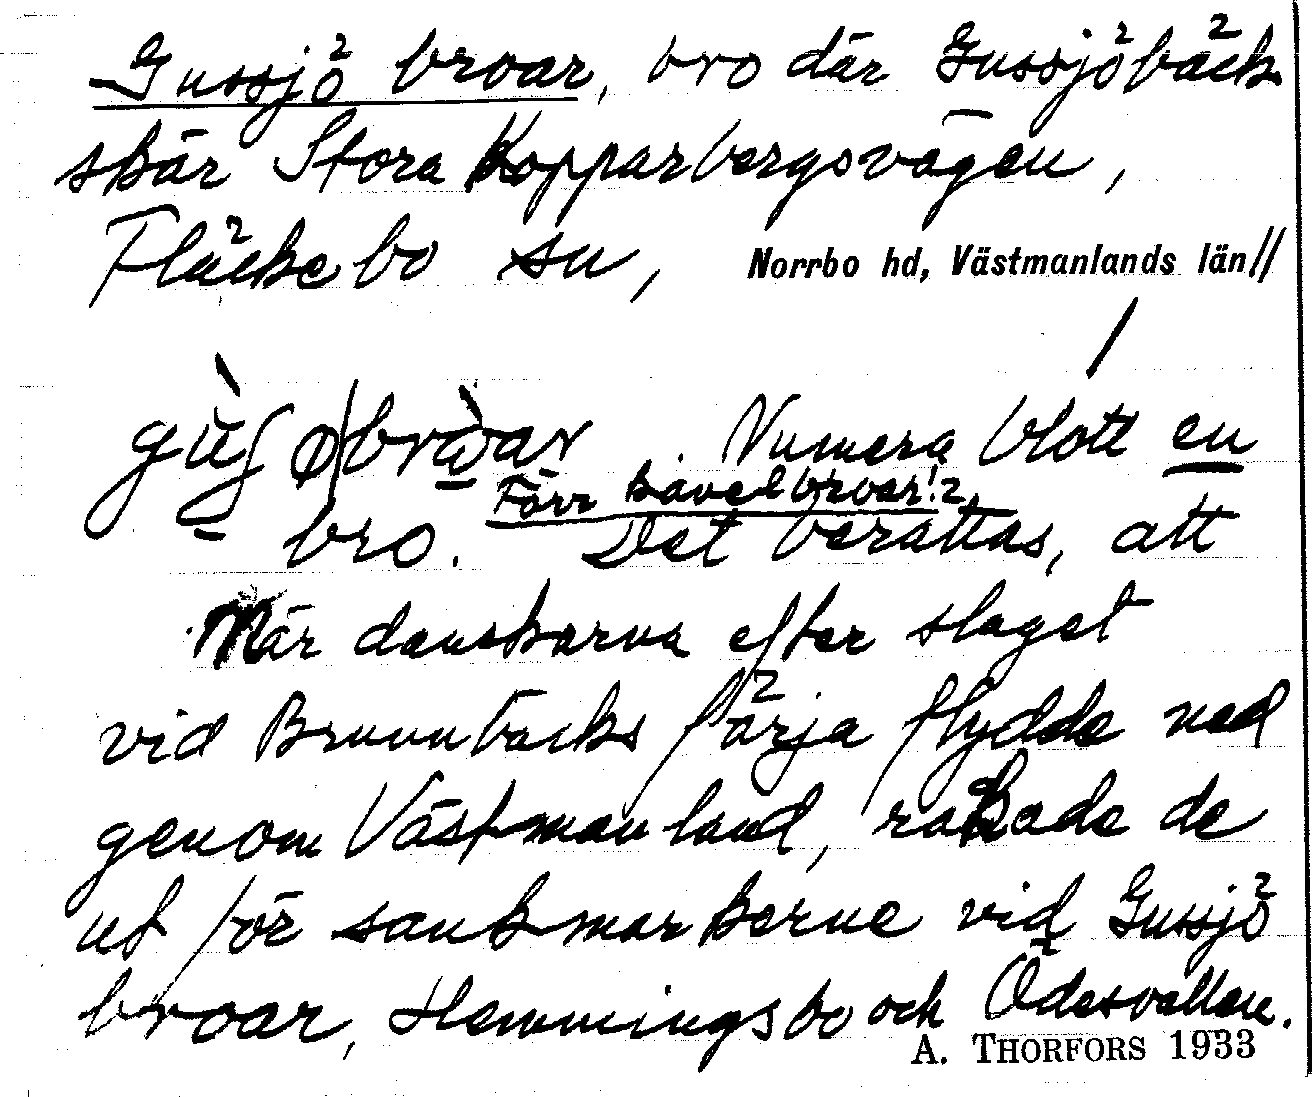 Gussjö broar, bro där Gussjöbäck
skär Stora Kopparbergsvägen,
Fläckebo sn, Norrbo hd, Västmanlands län//
Numera blott en
Förr kavelbroar!
bro. Det berättas, att
När danskarna efter slaget
vid Brunnbacks färja flydde ned
genom Västmanland, rakade de
ut för sankmarkerna vid Gussjö
broar, Hemmingsbo och Ödesvallen.
A. THORFORS 1933